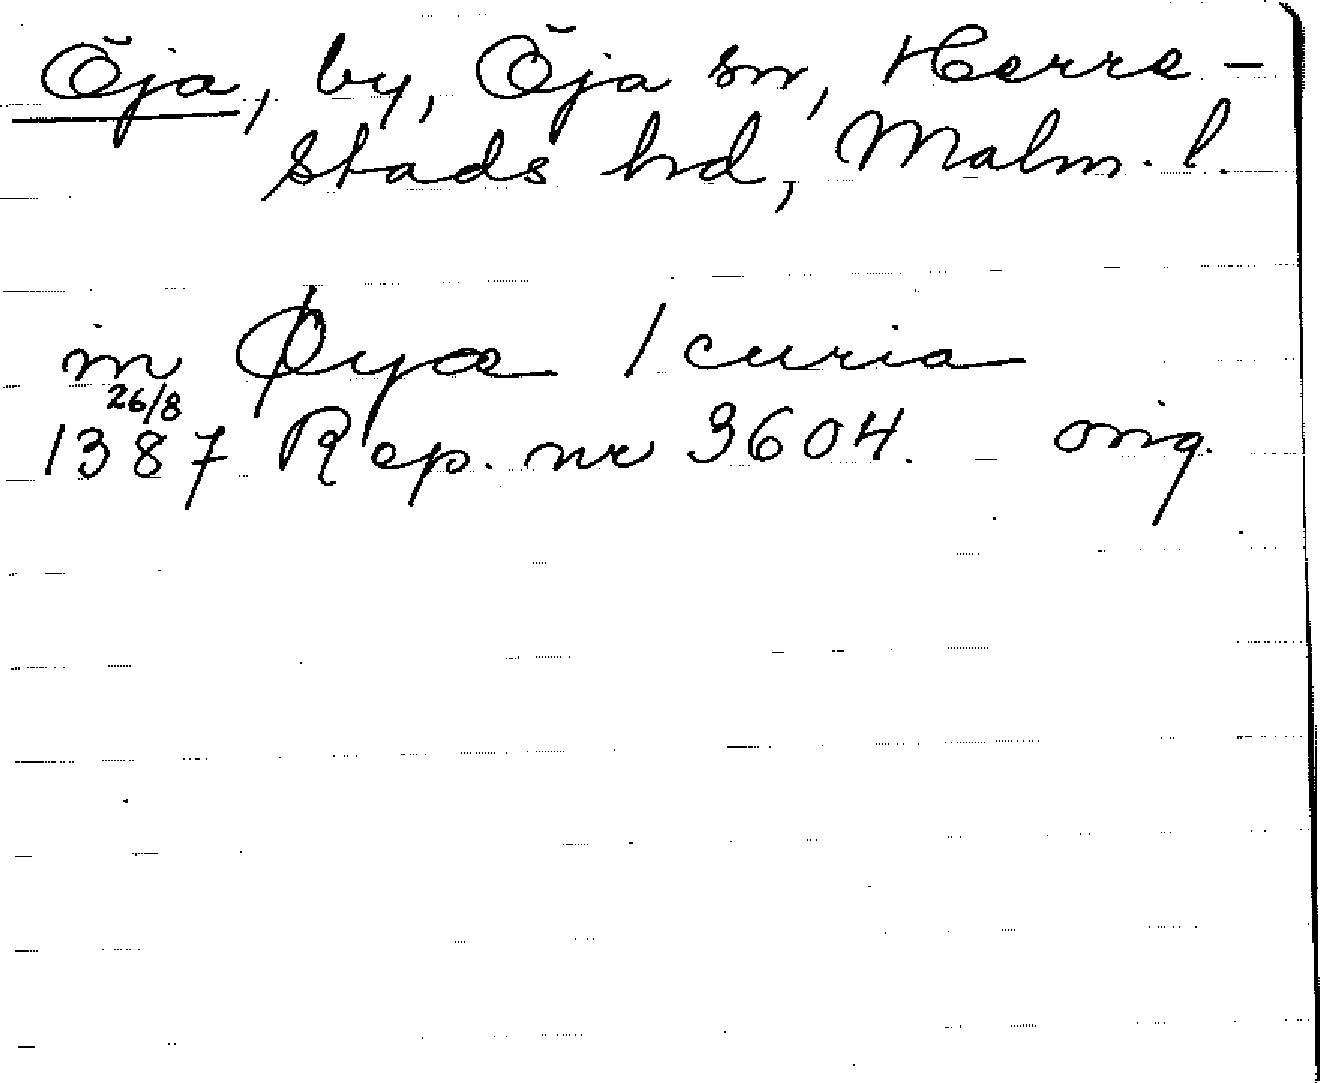 Öja, by, Öja sn, Herre-
stads hd, Malm. l.
in Øyæ 1 curia
26/8
1387 Rep. nr 3604. orig.